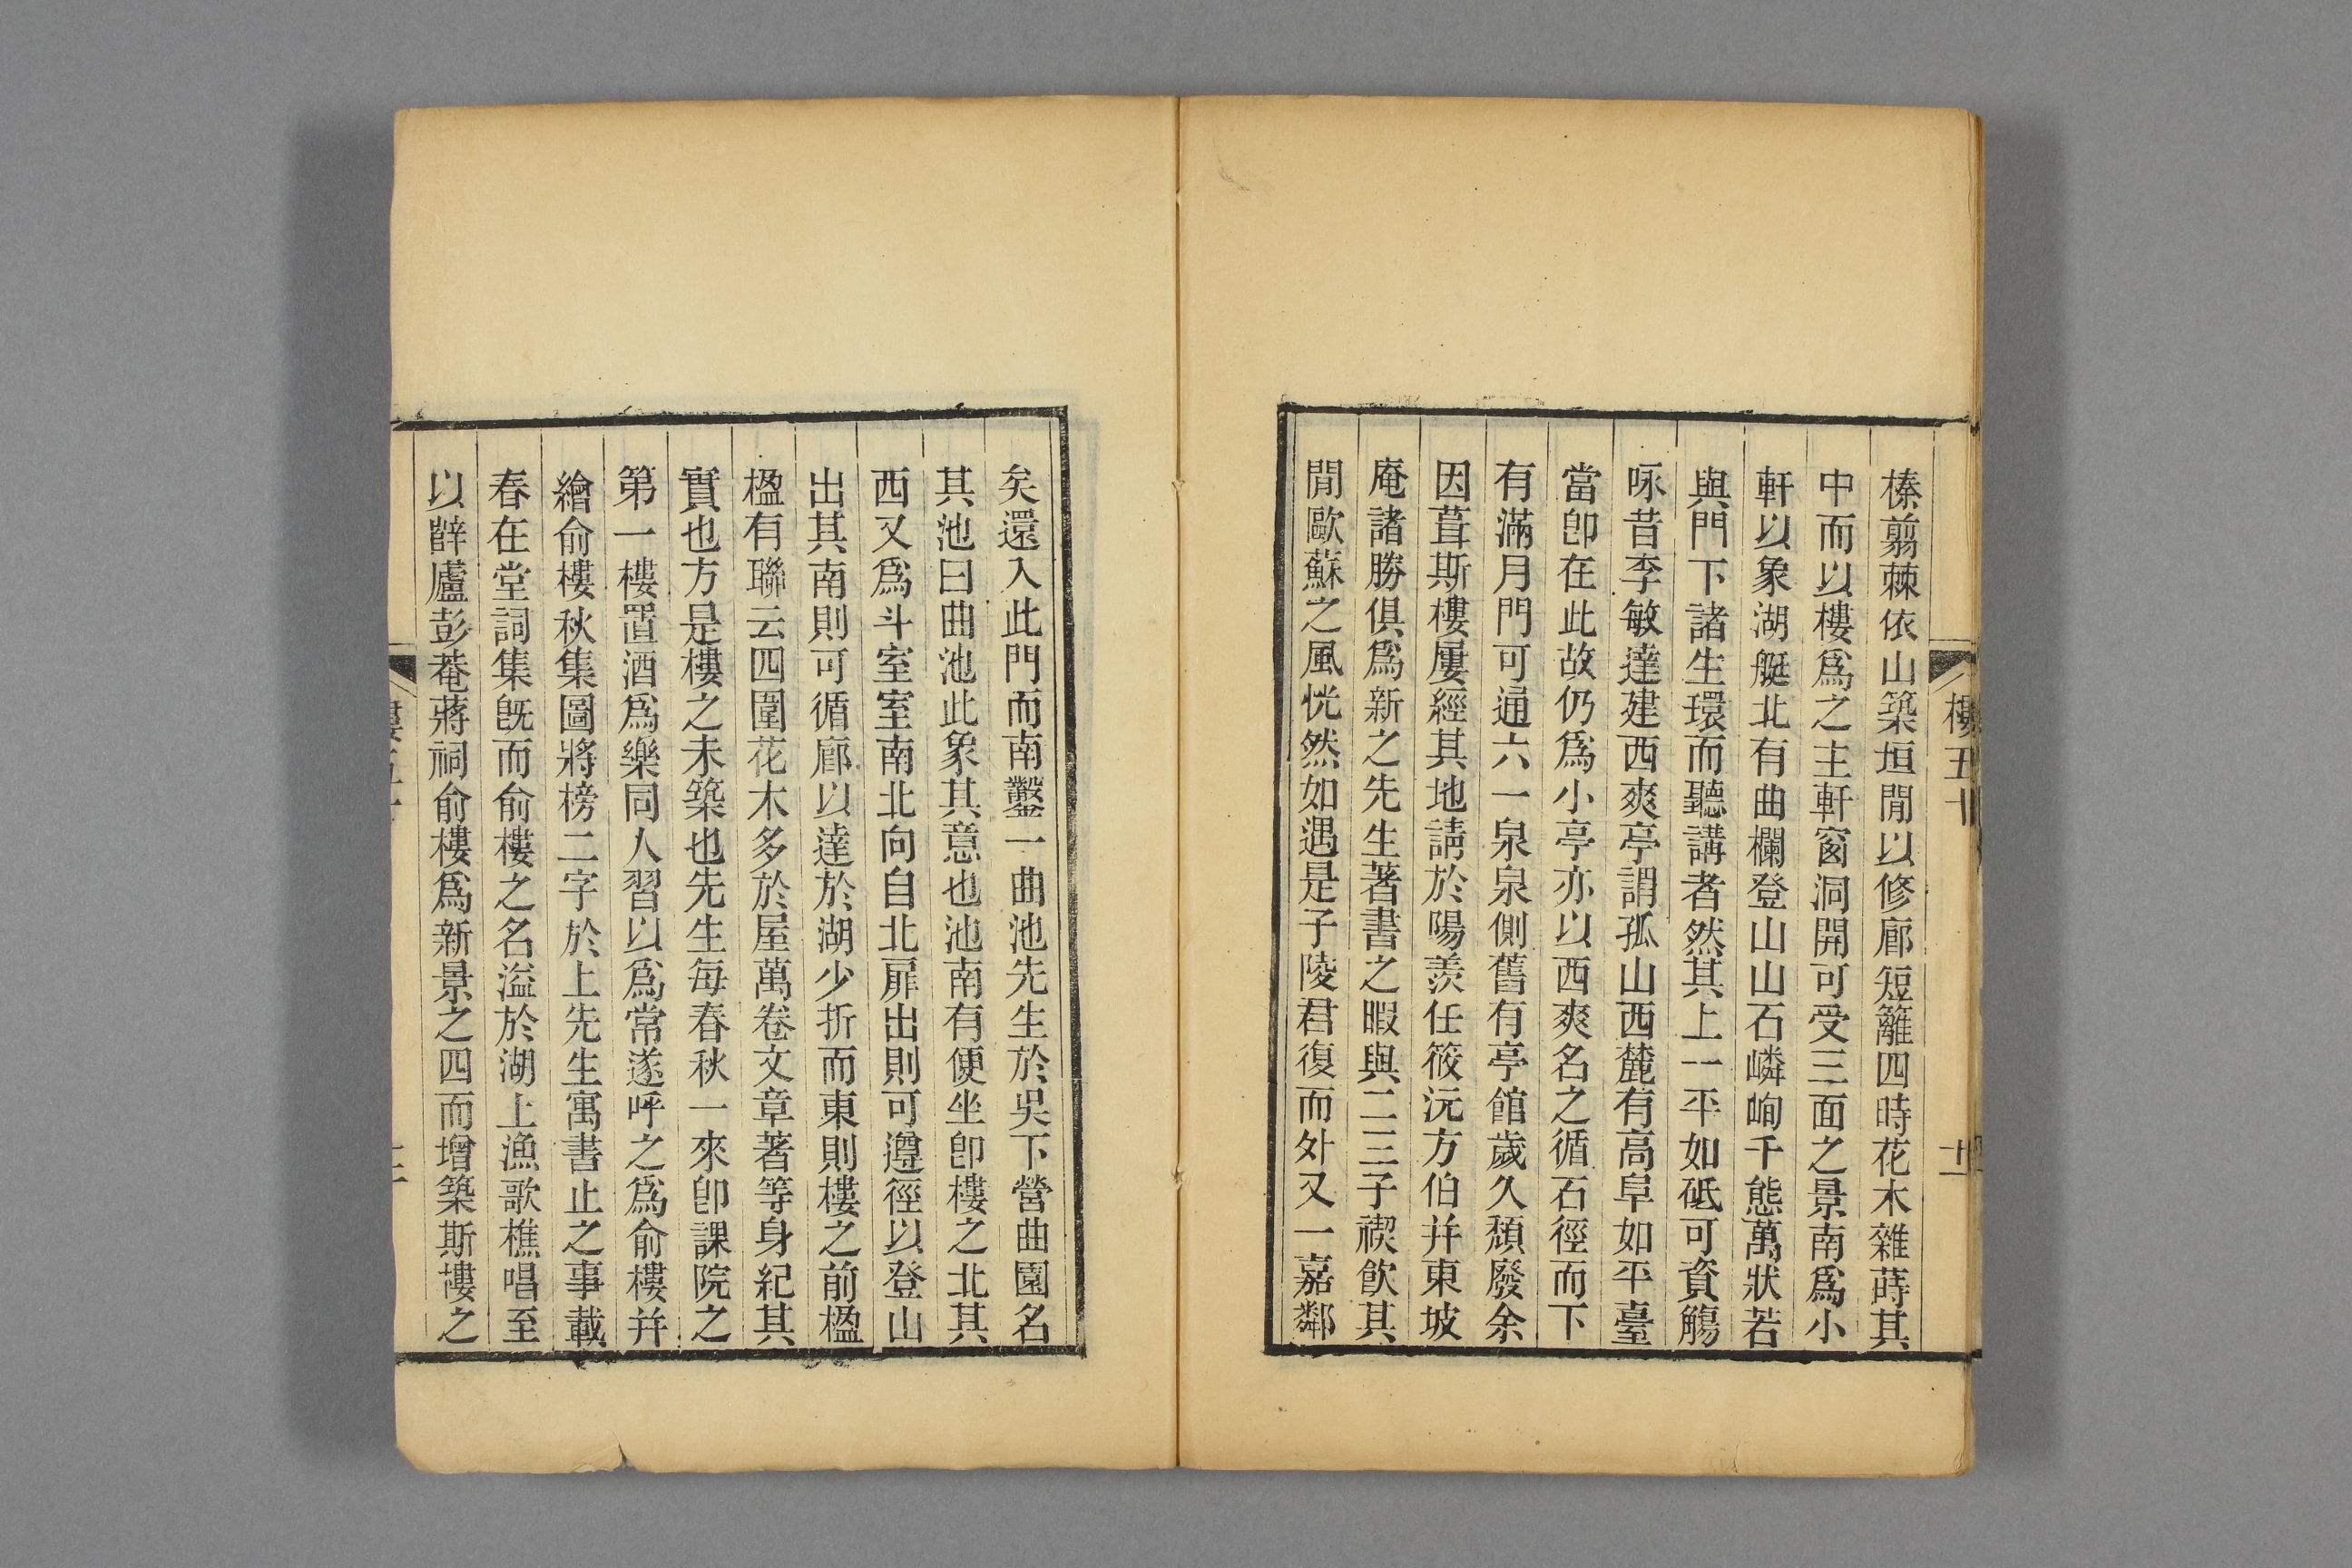 榛翦棘依山築垣閒以修廊短籬四時花木雜蒔其
中而以樓爲之主軒窗洞開可受三面之景南爲小
軒以象湖艇北有曲欄登山山石嶙峋千態萬狀若
與門下諸生環而聽講者然其上一平如砥可資觴
咏昔李敏達建西爽亭謂孤山西麓有高阜如平臺
當卽在此故仍爲小亭亦以西爽名之循石徑而下
有滿月門可通六一泉泉側舊有亭館歲久頹廢余
因葺斯樓屢經其地請於陽羨任筱沅方伯幷東坡
庵諸勝俱爲新之先生著書之暇與二三子禊飮其
閒歐蘇之風恍然如遇是子陵君復而外又一嘉鄰
矣還入此門而南鑿一曲池先生於吳下營曲園名
其池曰曲池此象其意也池南有便坐卽樓之北其
西又爲斗室室南北向自北扉出則可遵徑以登山
出其南則可循廊以達於湖少折而東則樓之前楹
楹有聯云四圍花木多於屋萬卷文章著等身紀其
實也方是樓之未築也先生每春秋一來卽課院之
第一樓置酒爲樂同人習以爲常遂呼之爲俞樓幷
繪俞樓秋集圖將榜二字於上先生寓書止之事載
春在堂詞集旣而俞樓之名溢於湖上漁歌樵唱至
以薛廬彭菴蔣祠俞樓爲新景之四而增築斯樓之
樓五十
十一